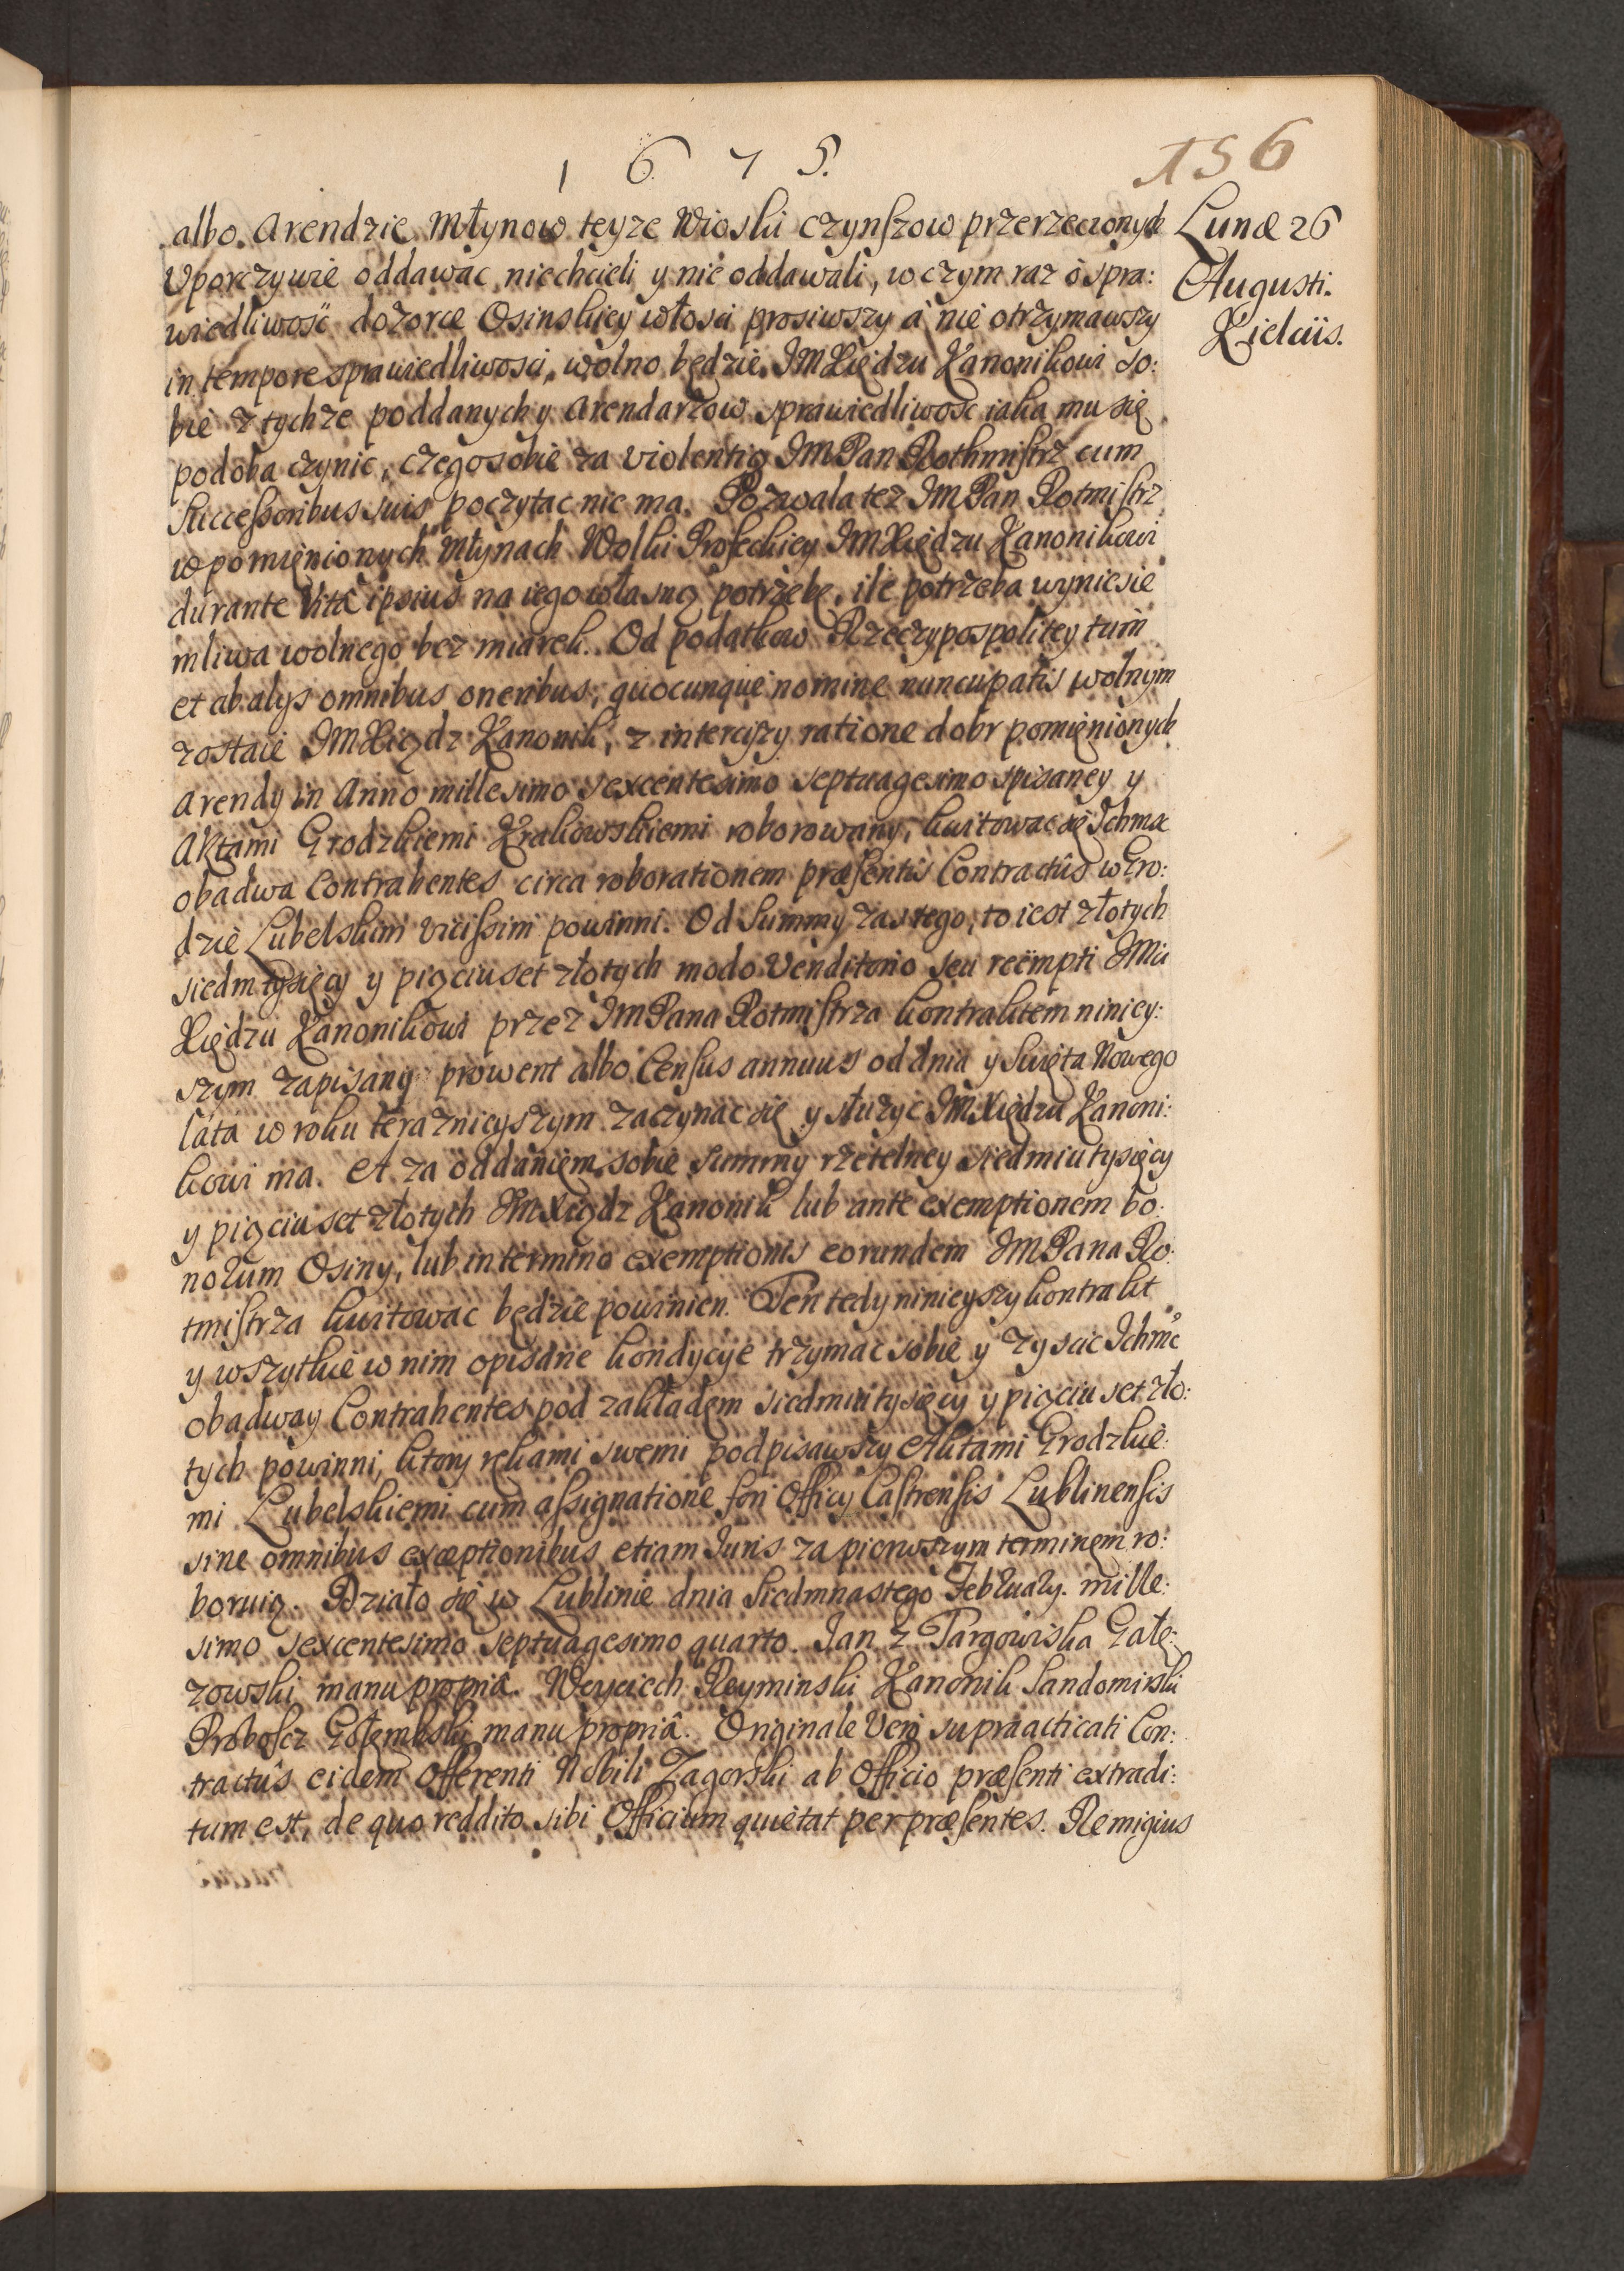 1675.
156
Lunæ 26
Augusti.
Kielciis.
albo Arendzie Młynow teyze Wioski Czynszow przerzeczonych
Vporczywie oddawac niechcieli y nie oddawali, w czym raz o spra:
wiedliwość dozorce Osinskiey włosci prosiwszy a nie otrzymawszy
in tempore sprawiedliwosci, wolno będzie IMXiędzu Kanonikowi so:
bie z tychze poddanych y Arendarzow sprawiedliwosc iaka mu się
podoba czynic, czego sobie za violentią IMPan Rothmistrz cum
Successoribus suis poczytac nie ma. Pozwala tez IMPan Rotmistrz
w pomięnionych Młynach Wolki Profeckiey IMXiędzu Kanonikowi
durante Vitâ ipsius na iego własną potrzebę, ile potrzeba wyniesie
mliwa wolnego bez miarek. Od podatkow Rzeczypospolitey tum
et ab alys omnibus oneribus, quocunque nomine nuncupatis wolnym
zostaie IMXiądz Kanonik, z intercyzy ratione dobr pomięnionych
Arendy in Anno millesimo sexcentesimo septuagesimo spisaney y
Aktami Grodzkiemi Krakowskiemi roborowany, kwitowac się Ichmsc
obadwa Contrahentes circa roborationem præsentis Contractûs w Gro:
dzie Lubelskim vicissim powinni. Od Summy zas tego, to iest złotych
siedmtysięcy y pięciuset złotych modo Venditorio seu reëmpti IMci
Xiędzu Kanonikowi przez IMPana Rotmistrza kontraktem niniey:
szym zapisany prowent albo Census annuus od dnia y Swięta Nowego
lata w roku teraznieyszym zaczynac się y słuzyc IMXiędzu Kanoni:
kowi ma. A za oddaniem sobie summy rzetelney siedmiutysięcy
y pięciuset złotych IMXiądz Kanonik lub ante exemptionem bo:
norum Osiny, lub in termino exemptionis eorundem IMPana Ro:
tmistrza kwitowac będzie powinien. Ten tedy ninieyszy kontrakt
y wszytkie w nim opisane kondycye trzymac sobie y zyscic Ichmc
obadway Contrahentes pod zakładem siedmiutysięcy y pięciuset zło:
tych powinni, ktory rękami swemi podpisawszy Aktami Grodzkie:
mi Lubelskiemi cum assignatione fori Officy Castrensis Lublinensis
sine omnibus exceptionibus etiam Iuris za pierwszym terminem ro:
boruią. Działo się w Lublinie dnia Siedmnastego February. mille:
simo sexcentesimo septuagesimo quarto. Jan z Targowiska Gałę:
zowski manu propriâ. Woyciech Reyminski Kanonik Sandomirski
Proboscz Gołembski manu propriâ. Originale Vero supraacticati Con:
tractûs eidem Offerenti Nobili Zagorski ab Officio præsenti extradi:
tum est, de quo reddito sibi Officium quietat per præsentes. Remigius